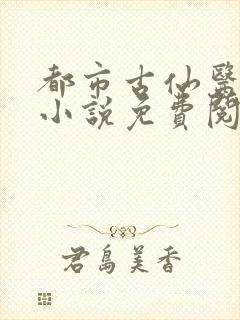 都市古仙醫
小說免費閱
君島美香